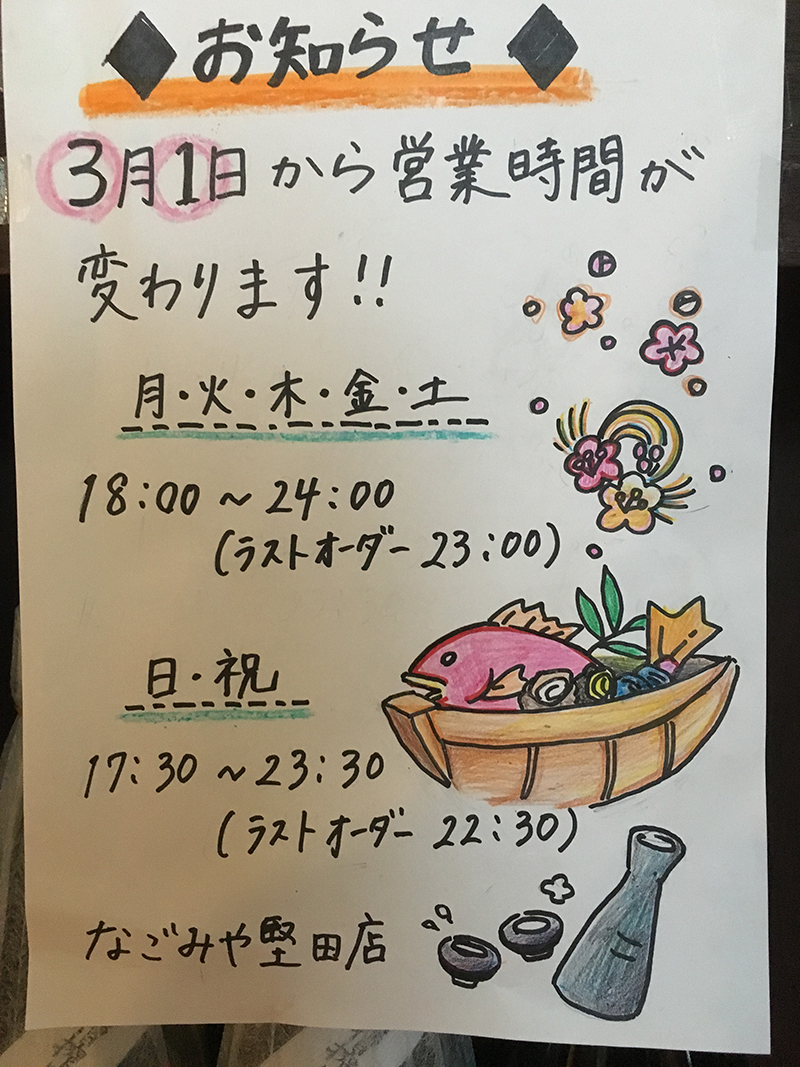 ◆お知らせ◆
3月1日から営業時間が
変わります!!
月・火・木・金・土
18:00～24:00
(ラストオーダー 23:00)
日・祝
17:30～23:30
(ラストオーダー 22:30)
なごみや堅田店